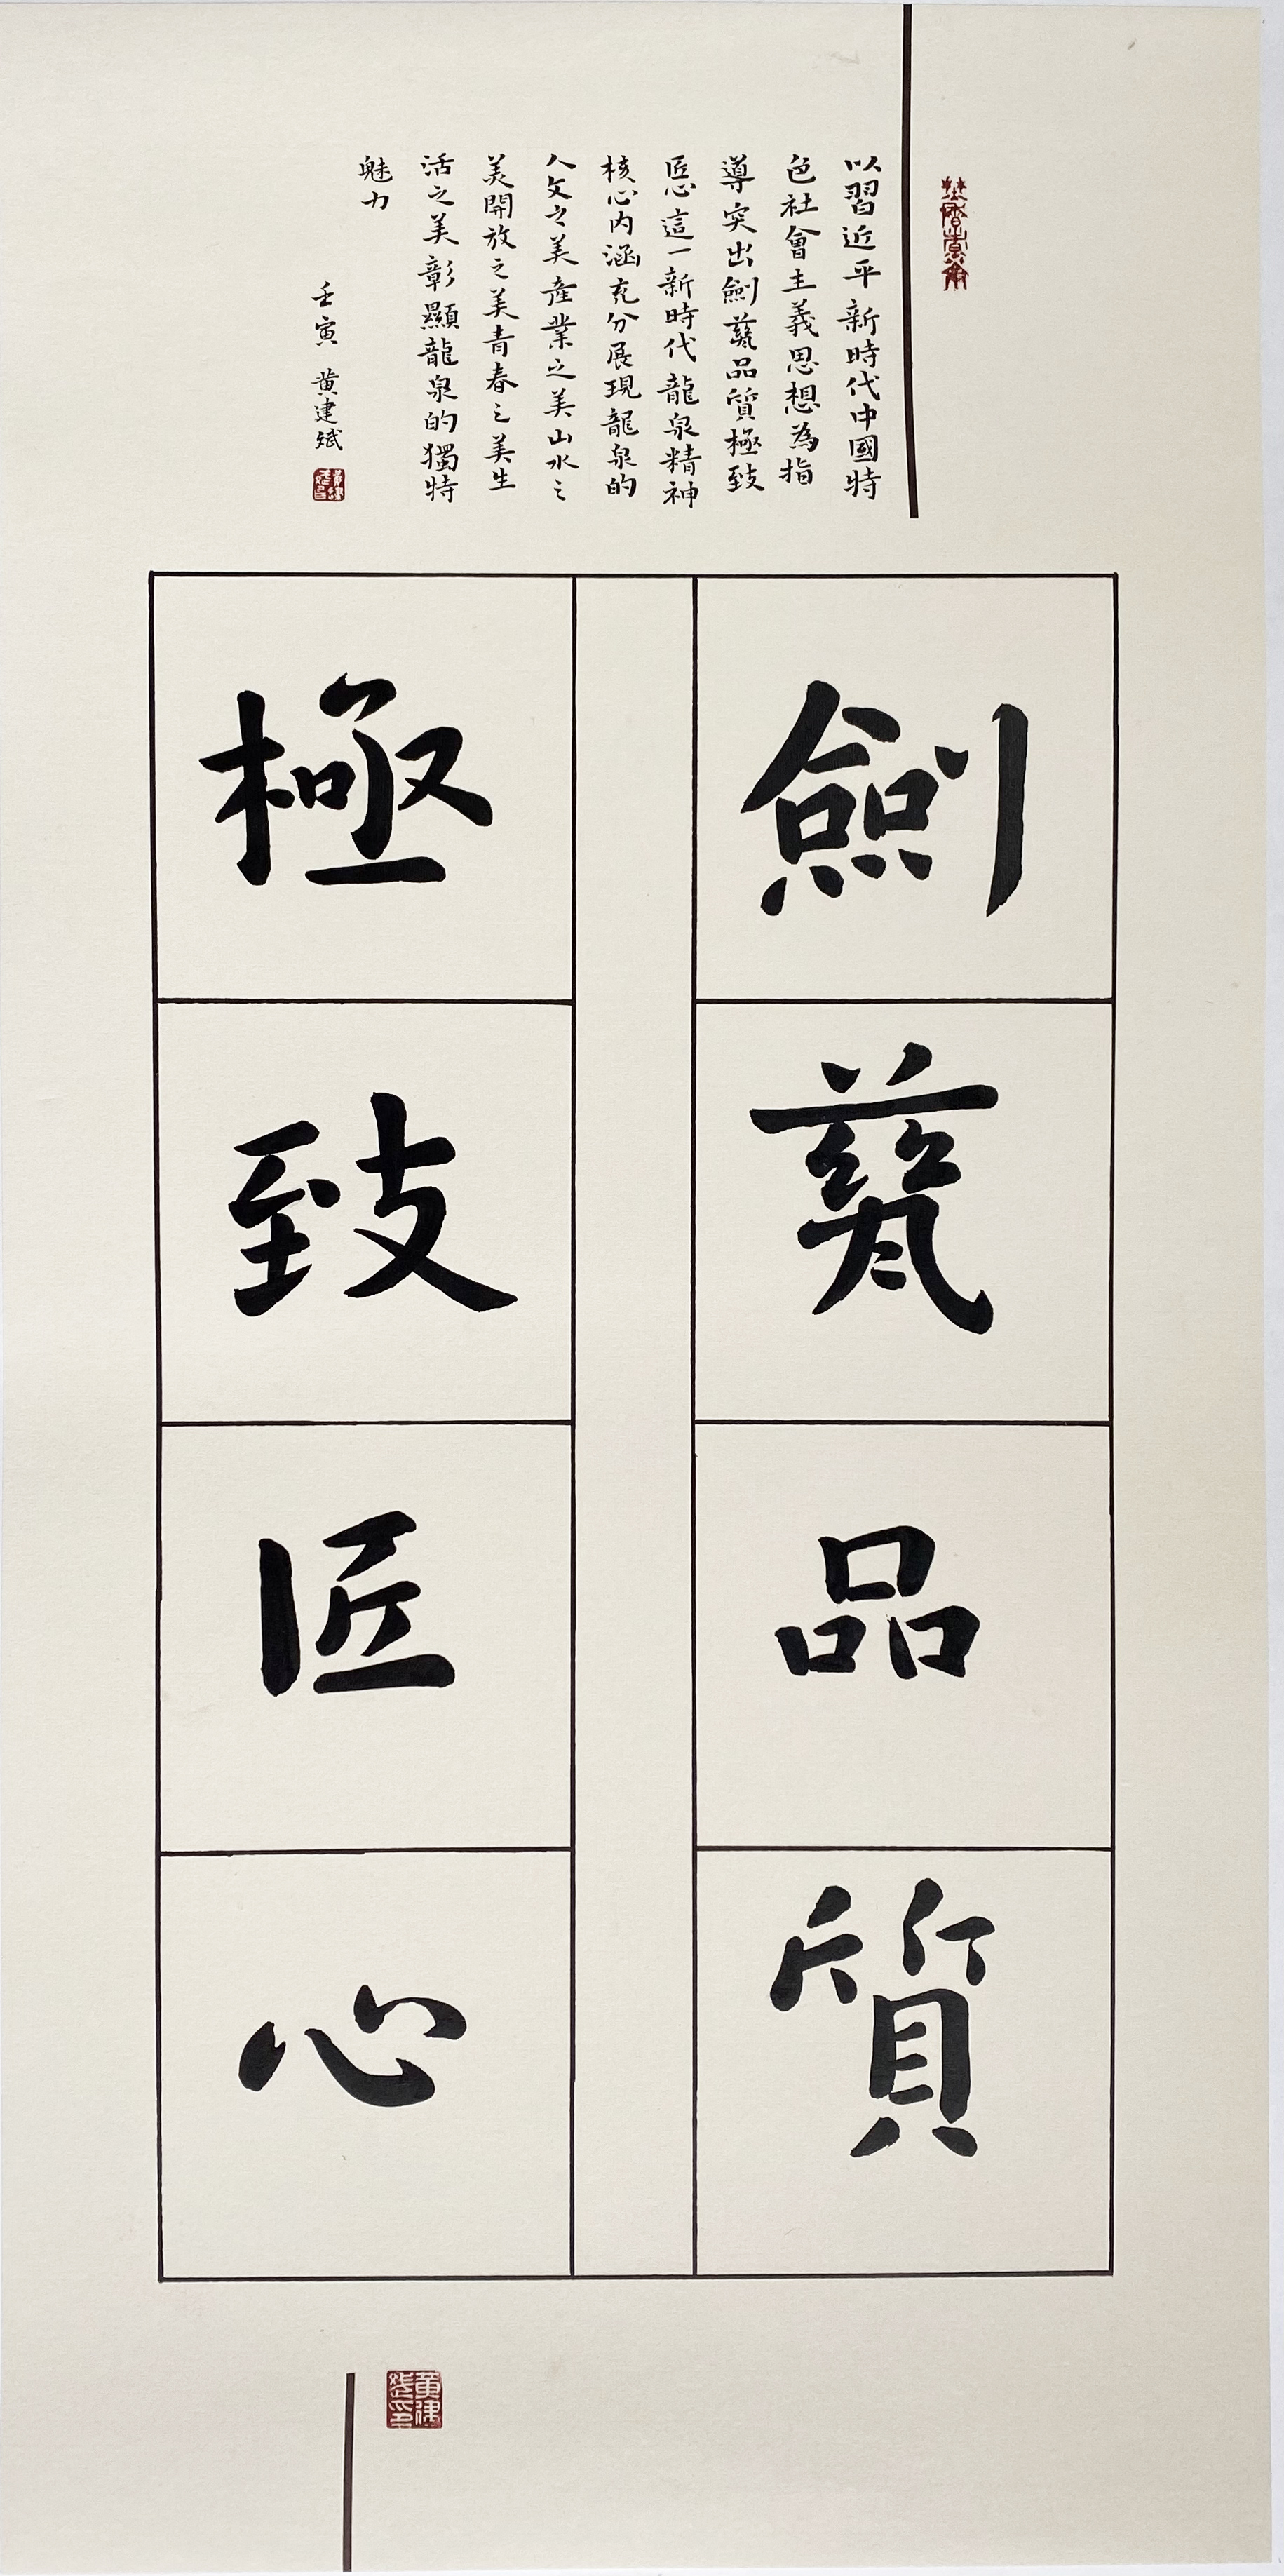 以習近平新時代中國特
色社會主義思想為指
導突出劍蓺品質極致
匠心這一新時代龍泉精神
核心內涵充分展現龍泉的
人文之美產業之美山水之
美開放之美青春之美生
活之美彰顯龍泉的獨特
魅力
壬寅 黃建斌
劍蓺品質
極致匠心